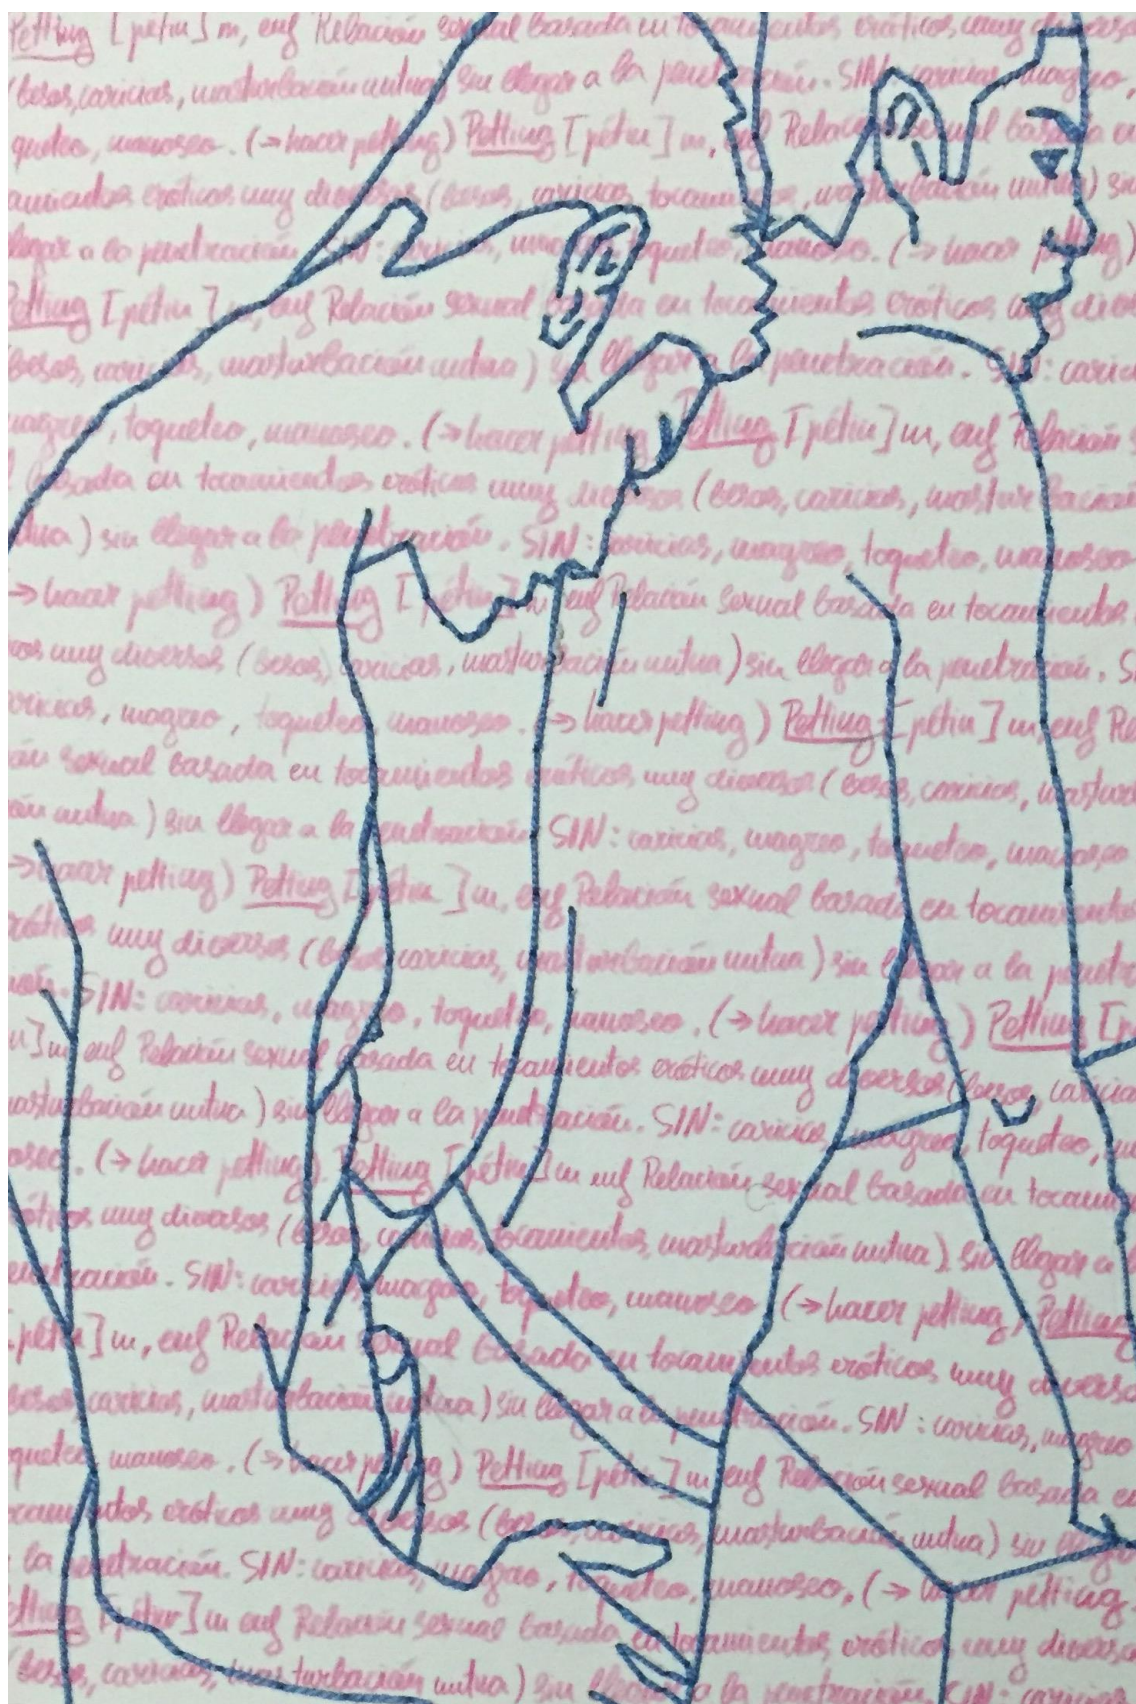 Petting [pétin] m, enf Relación sexual basada en tocamientos eróticos muy diversos
(besos, caricias, masturbación mutua) sin llegar a la penetración. SIN: caricias, magreo,
queteo, manoseo. (→ hacer petting) Petting [pétin] m, enf Relación sexual basada en
amientos eróticos muy diversos (besos, caricias, tocamientos, masturbación mutua) sin
llegar a la penetración SIN: caricias, magreo, toqueteo, manoseo. (→ hacer petting)
Petting [pétin] m, enf Relación sexual basada en tocamientos eróticos muy diver
(besos, caricias, masturbación mutua) sin llegar a la penetración. SIN: carici
magreo, toqueteo, manoseo. (→ hacer petting) Petting [pétin] m, enf Relación s
l basada en tocamientos eróticos muy diversos (besos, caricias, masturbación
utua) sin llegar a la penetración. SIN: caricias, magreo, toqueteo, manoseo
→ hacer petting) Petting [pétin] m, enf Relación sexual basada en tocamientos
cos muy diversos (besos, caricias, masturbación mutua) sin llegar a la penetración. S
aricias, magreo, toqueteo, manoseo. (→ hacer petting) Petting [pétin] m, enf Re
ón sexual basada en tocamientos eróticos muy diversos (besos, caricias, masturb
ón mutua) sin llegar a la penetración SIN: caricias, magreo, toqueteo, manoseo
→ hacer petting) Petting [pétin] m, enf Relación sexual basada en tocamientos
róticos muy diversos (besos, caricias, masturbación mutua) sin llegar a la penetr
ión. SIN: caricias, magreo, toqueteo, manoseo. (→ hacer petting) Petting [p
n] m, enf Relación sexual basada en tocamientos eróticos muy diversos (besos, caricia
masturbación mutua) sin llegar a la penetración. SIN: caricias, magreo, toqueteo, m
oseo. (→ hacer petting) Petting [pétin] m enf Relación sexual basada en tocami
róticos muy diversos (besos, caricias, tocamientos, masturbación mutua) sin llegar a l
enetración. SIN: caricias, magreo, toqueteo, manoseo (→ hacer petting) Petting
[pétin] m, enf Relación sexual basada en tocamientos eróticos muy diverso
besos, caricias, masturbación mutua) sin llegar a la penetración. SIN: caricias, magreo
queteo, manoseo. (→ hacer petting) Petting [pétin] m enf Relación sexual basada en
ocamientos eróticos muy diversos (besos, caricias, masturbación mutua) sin llegar
a la penetración. SIN: caricias, magreo, toqueteo, manoseo. (→ hacer petting.
etting [pétin] m enf Relación sexual basada en tocamientos, eróticos, muy diversos
(besos, caricias, masturbación mutua) sin llegar a la penetración SIN: caricias